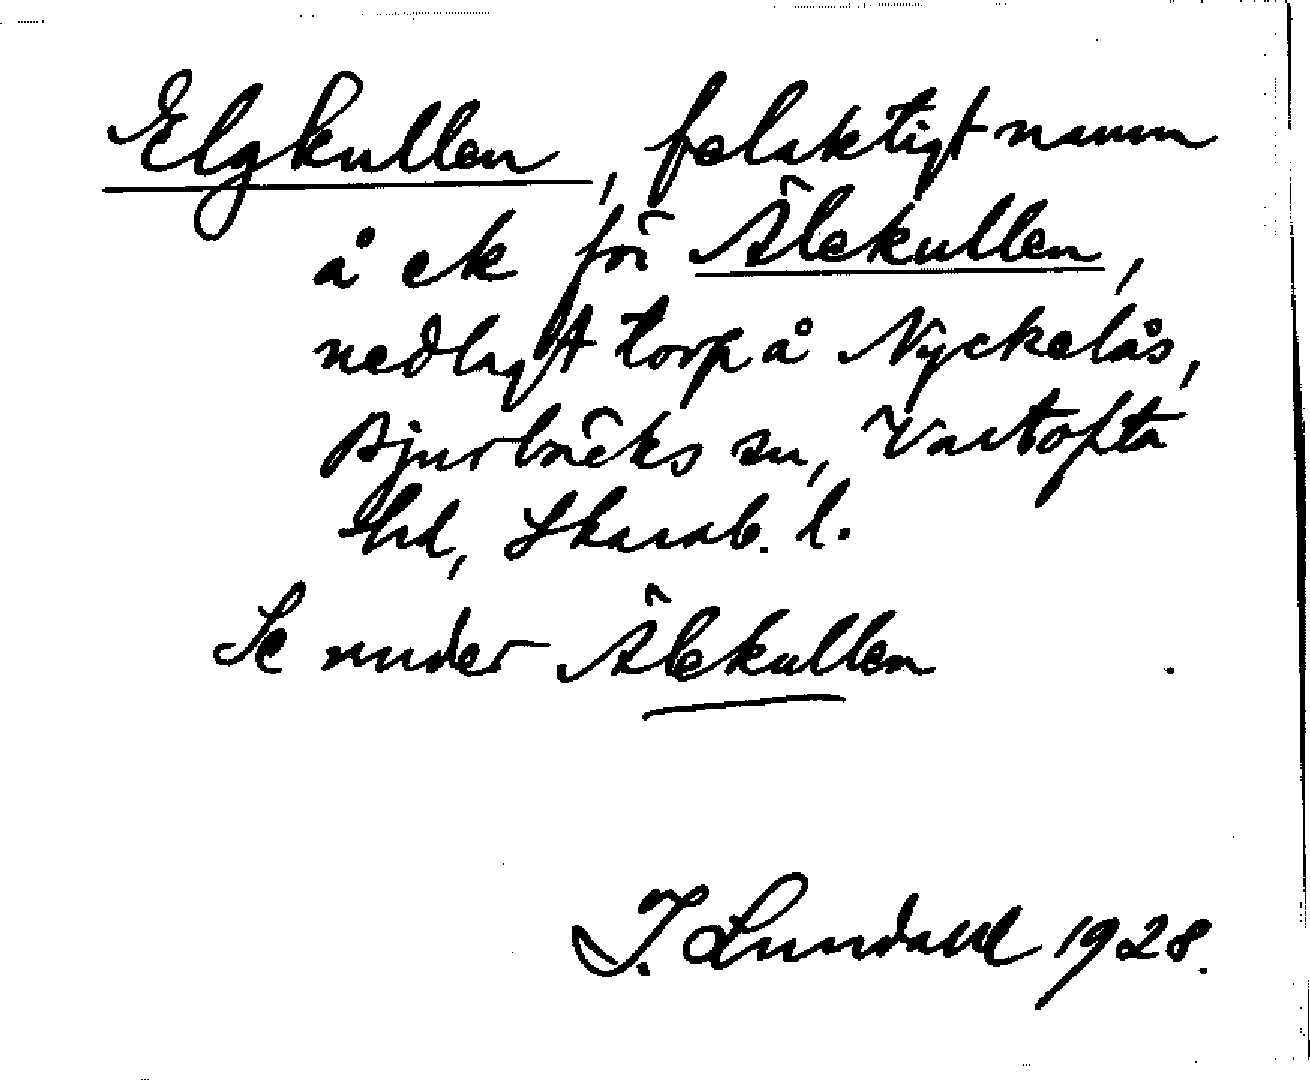 Elgkullen, felaktigt namn
å ek för Älekullen,
nedlagt torp å Nyckelås,
Bjurbäcks sn, Vartofta
hd, Skarab. l.
Se under Älekullen
I. Lundahl 1928.